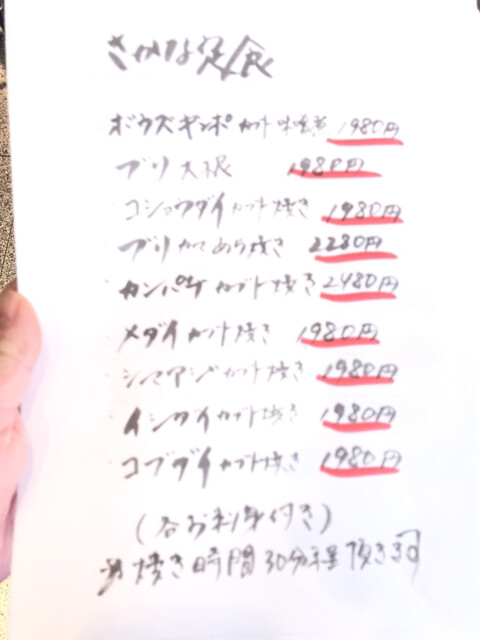 さかな定食
ボウズギンポ カブト 味噌煮 1980円
ブリ大根 1980円
コショウダイ カブト焼き 1980円
ブリ カマ あら焼き 2280円
カンパチ カブト焼き 2480円
メダイ カブト焼き 1980円
シマアジ カブト焼き 1980円
イシダイ カブト焼き 1980円
コブダイ カブト焼き 1980円
(各お刺身付き)
焼き時間30分程頂きます